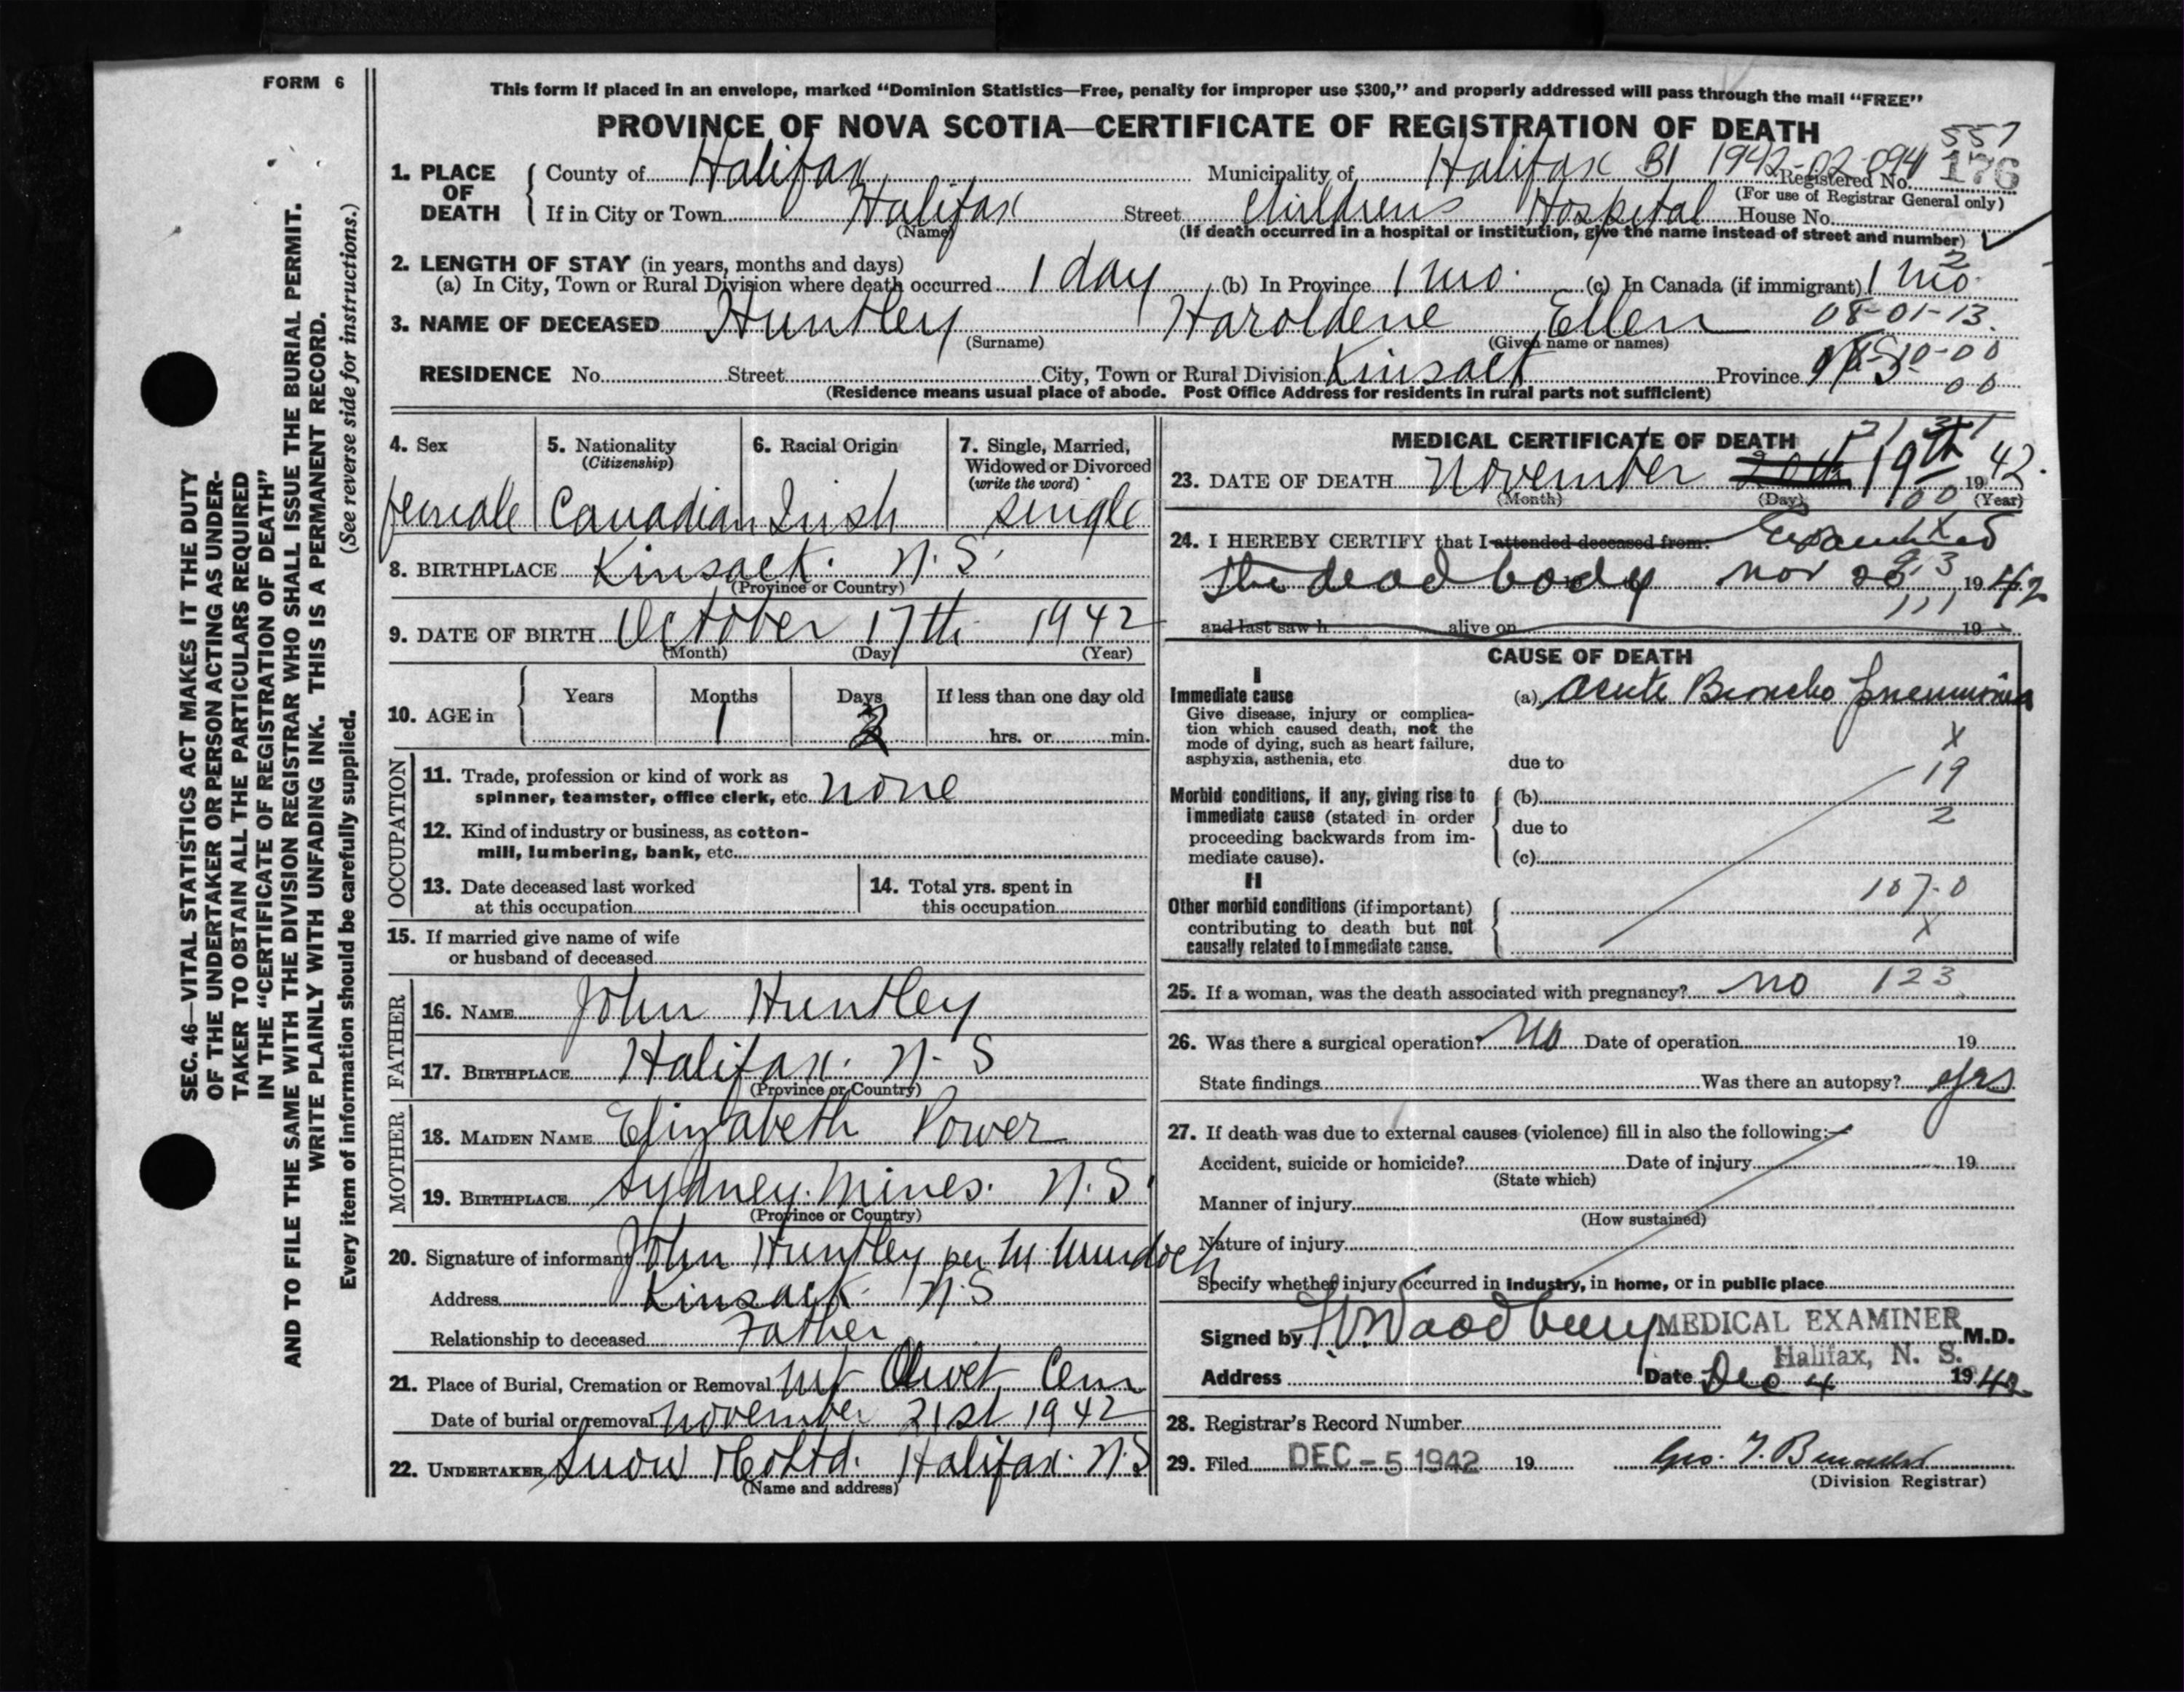 FORM 6
This form if placed in an envelope, marked “Dominion Statistics—Free, penalty for improper use $300,” and properly addressed will pass through the mail “FREE”
PROVINCE OF NOVA SCOTIA—CERTIFICATE OF REGISTRATION OF DEATH
557
1. PLACE OF DEATH
County of Halifax Municipality of Halifax B1 1942-02-094 Registered No. 176
(For use of Registrar General only)
If in City or Town Halifax Street Childrens Hospital House No.
(Name) (If death occurred in a hospital or institution, give the name instead of street and number)
2
2. LENGTH OF STAY (in years, months and days)
(a) In City, Town or Rural Division where death occurred 1 day (b) In Province 1 mo. (c) In Canada (if immigrant) 1 mo.
3. NAME OF DECEASED Huntley Haroldene Ellen 08-01-13
(Surname) (Given name or names)
RESIDENCE No. Street City, Town or Rural Division Kinsack Province N.S. 10-00
00
(Residence means usual place of abode. Post Office Address for residents in rural parts not sufficient)
4. Sex 5. Nationality (Citizenship) 6. Racial Origin 7. Single, Married, Widowed or Divorced (write the word)
female Canadian Irish single
8. BIRTHPLACE Kinsack. N.S.
(Province or Country)
9. DATE OF BIRTH October 17th 1942
(Month) (Day) (Year)
10. AGE in Years Months Days If less than one day old
1 2 hrs. or min.
OCCUPATION
11. Trade, profession or kind of work as
spinner, teamster, office clerk, etc. none
12. Kind of industry or business, as cotton-
mill, lumbering, bank, etc.
13. Date deceased last worked
at this occupation
14. Total yrs. spent in
this occupation
15. If married give name of wife
or husband of deceased
FATHER
16. NAME John Huntley
17. BIRTHPLACE Halifax. N.S
(Province or Country)
MOTHER
18. MAIDEN NAME Elizabeth Power
19. BIRTHPLACE Sydney. Mines. N.S.
(Province or Country)
20. Signature of informant John Huntley per M. Murdoch
Address Kinsack. N.S
Relationship to deceased Father
21. Place of Burial, Cremation or Removal Mt Olivet Cem
Date of burial or removal November 21st 1942
22. UNDERTAKER Snow & Co Ltd. Halifax. N.S
(Name and address)
MEDICAL CERTIFICATE OF DEATH
23. DATE OF DEATH November 20th 19th 1942.
(Month) (Day) 00 (Year)
24. I HEREBY CERTIFY that I attended deceased from: Examined
the dead body Nov 20 1942
111
and last saw h alive on 19
CAUSE OF DEATH
I
Immediate cause
Give disease, injury or complica-
tion which caused death, not the
mode of dying, such as heart failure,
asphyxia, asthenia, etc.
(a) Acute Broncho pneumonia
X
due to
19
Morbid conditions, if any, giving rise to
immediate cause (stated in order
proceeding backwards from im-
mediate cause).
(b)
2
due to
(c)
II
107-0
Other morbid conditions (if important)
contributing to death but not
causally related to immediate cause.
X
25. If a woman, was the death associated with pregnancy? no 123
26. Was there a surgical operation? No Date of operation 19
State findings Was there an autopsy? yes
27. If death was due to external causes (violence) fill in also the following:—
Accident, suicide or homicide? Date of injury 19
(State which)
Manner of injury
(How sustained)
Nature of injury
Specify whether injury occurred in industry, in home, or in public place
Signed by Woodbury MEDICAL EXAMINER M.D.
Halifax, N. S.
Address Date Dec 4 1942
28. Registrar's Record Number
29. Filed DEC - 5 1942 19
(Division Registrar)
SEC. 46—VITAL STATISTICS ACT MAKES IT THE DUTY
OF THE UNDERTAKER OR PERSON ACTING AS UNDER-
TAKER TO OBTAIN ALL THE PARTICULARS REQUIRED
IN THE “CERTIFICATE OF REGISTRATION OF DEATH”
AND TO FILE THE SAME WITH THE DIVISION REGISTRAR WHO SHALL ISSUE THE BURIAL PERMIT.
WRITE PLAINLY WITH UNFADING INK. THIS IS A PERMANENT RECORD.
Every item of information should be carefully supplied. (See reverse side for instructions.)